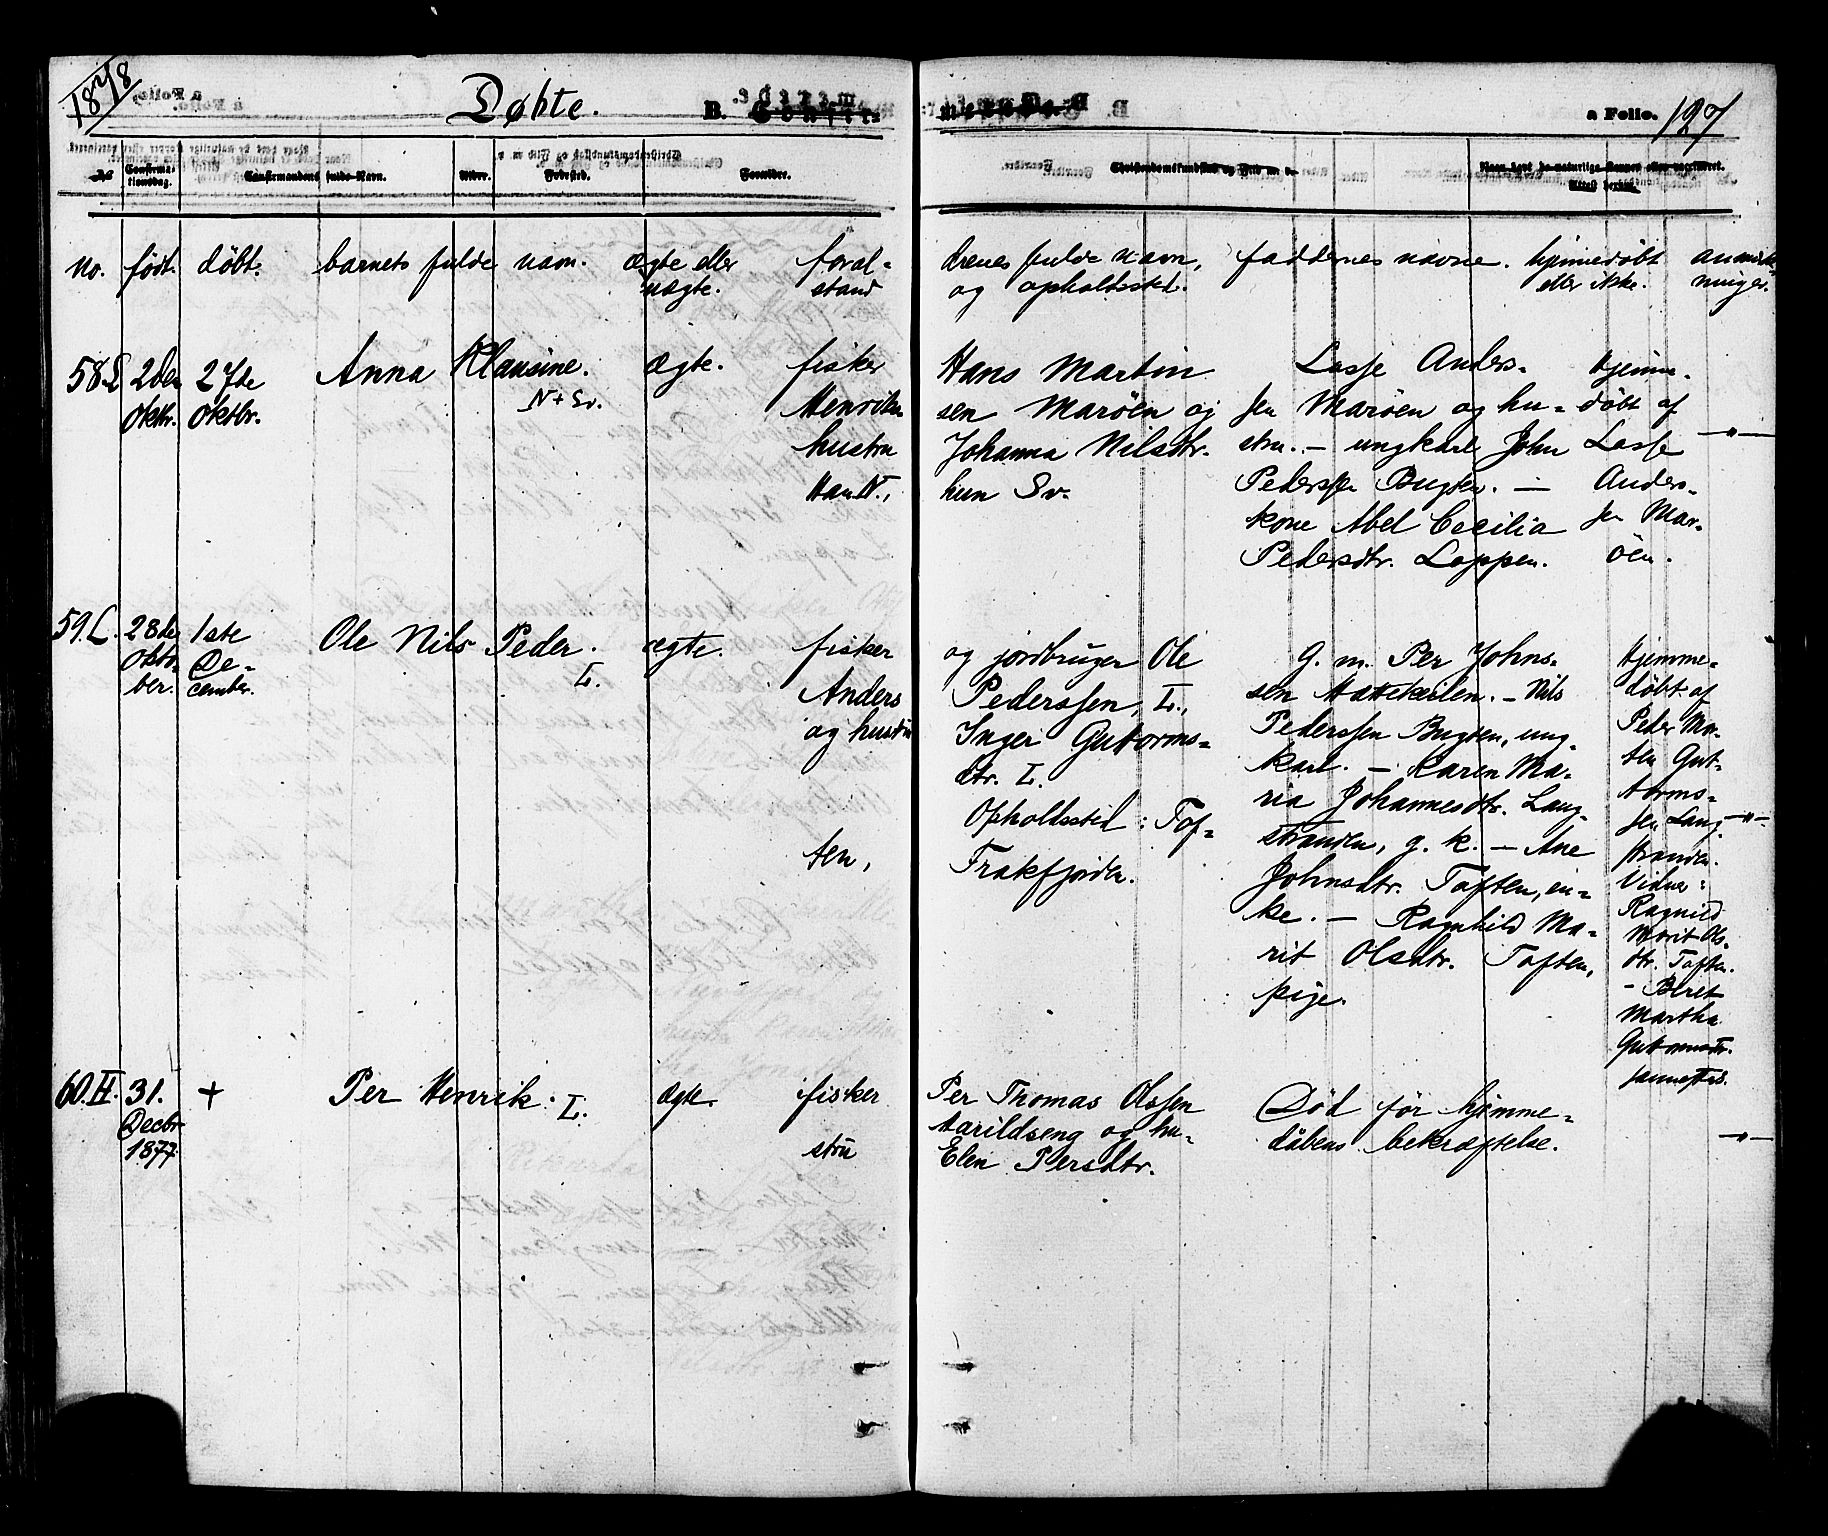 1878
Døbte.
B.
a Folio. 127
Confirma-
tionsdag.
Confirmandens fulde Navn.
Alder.
Fødested.
Forældre.
Christendomskundskab og Flid m. v.
no. født. døbt. barnets fulde navn. ægte eller uægte. foræl-
stand
drenes fulde navn, og opholdssted. faddernes navne. hjemmedøbt eller ikke. anmærk-
ninger.
58.
2den
Oktbr.
27de
Oktbr.
Anna Klausine.
N + Sv.
ægte.
fisker
Henriksen
hustru
Han N.,
Hans Martin
sen Marøen og
Johanna Nilsdtr.
hun Sv.
Lasse Anders-
sen Marøen og hu-
stru. - ungkarl John
Pederssen Bugten. -
kone Abel Cecilia
Pedersdtr. Loppen.
Hjemme-
døbt af
Lasse
Anders-
sen Mar-
øen.
— " —
59. L.
28de
Okto-
ber.
1ste
De-
cember.
Ole Nils Peder.
L.
ægte.
fisker
Anders
og hustru
ten,
og jordbruger Ole
Pederssen, L.,
Inger Guttorms-
dtr. L.
Opholdssted: Tof-
Frakfjorden.
g. m. Per Johns-
sen Hattekeilen. - Nils
Pederssen Bugten, ung-
karl. - Karen Ma-
ria Johannesdtr. Lang-
stranden, g. k. - Ane
Johnsdtr. Toften, en-
ke. - Ragnhild Ma-
rit Olsdtr. Toften,
pige.
Hjemme-
døbt af
Peder Mor-
ten Gut-
torms-
sen Lang-
stranden.
Vidner:
Ragnild
Marit Ols-
dtr. Toften.
- Beret
Martha
Guttormsdtr.
sammesteds.
— " —
60. H.
31.
Decbr
1877.
+
Per Henrik. L.
ægte.
fisker
stru
Per Thomas Olssen
Aarildseng og hu-
Elen Persdtr.
Død før hjemme-
dåbens bekræftelse.
— " —